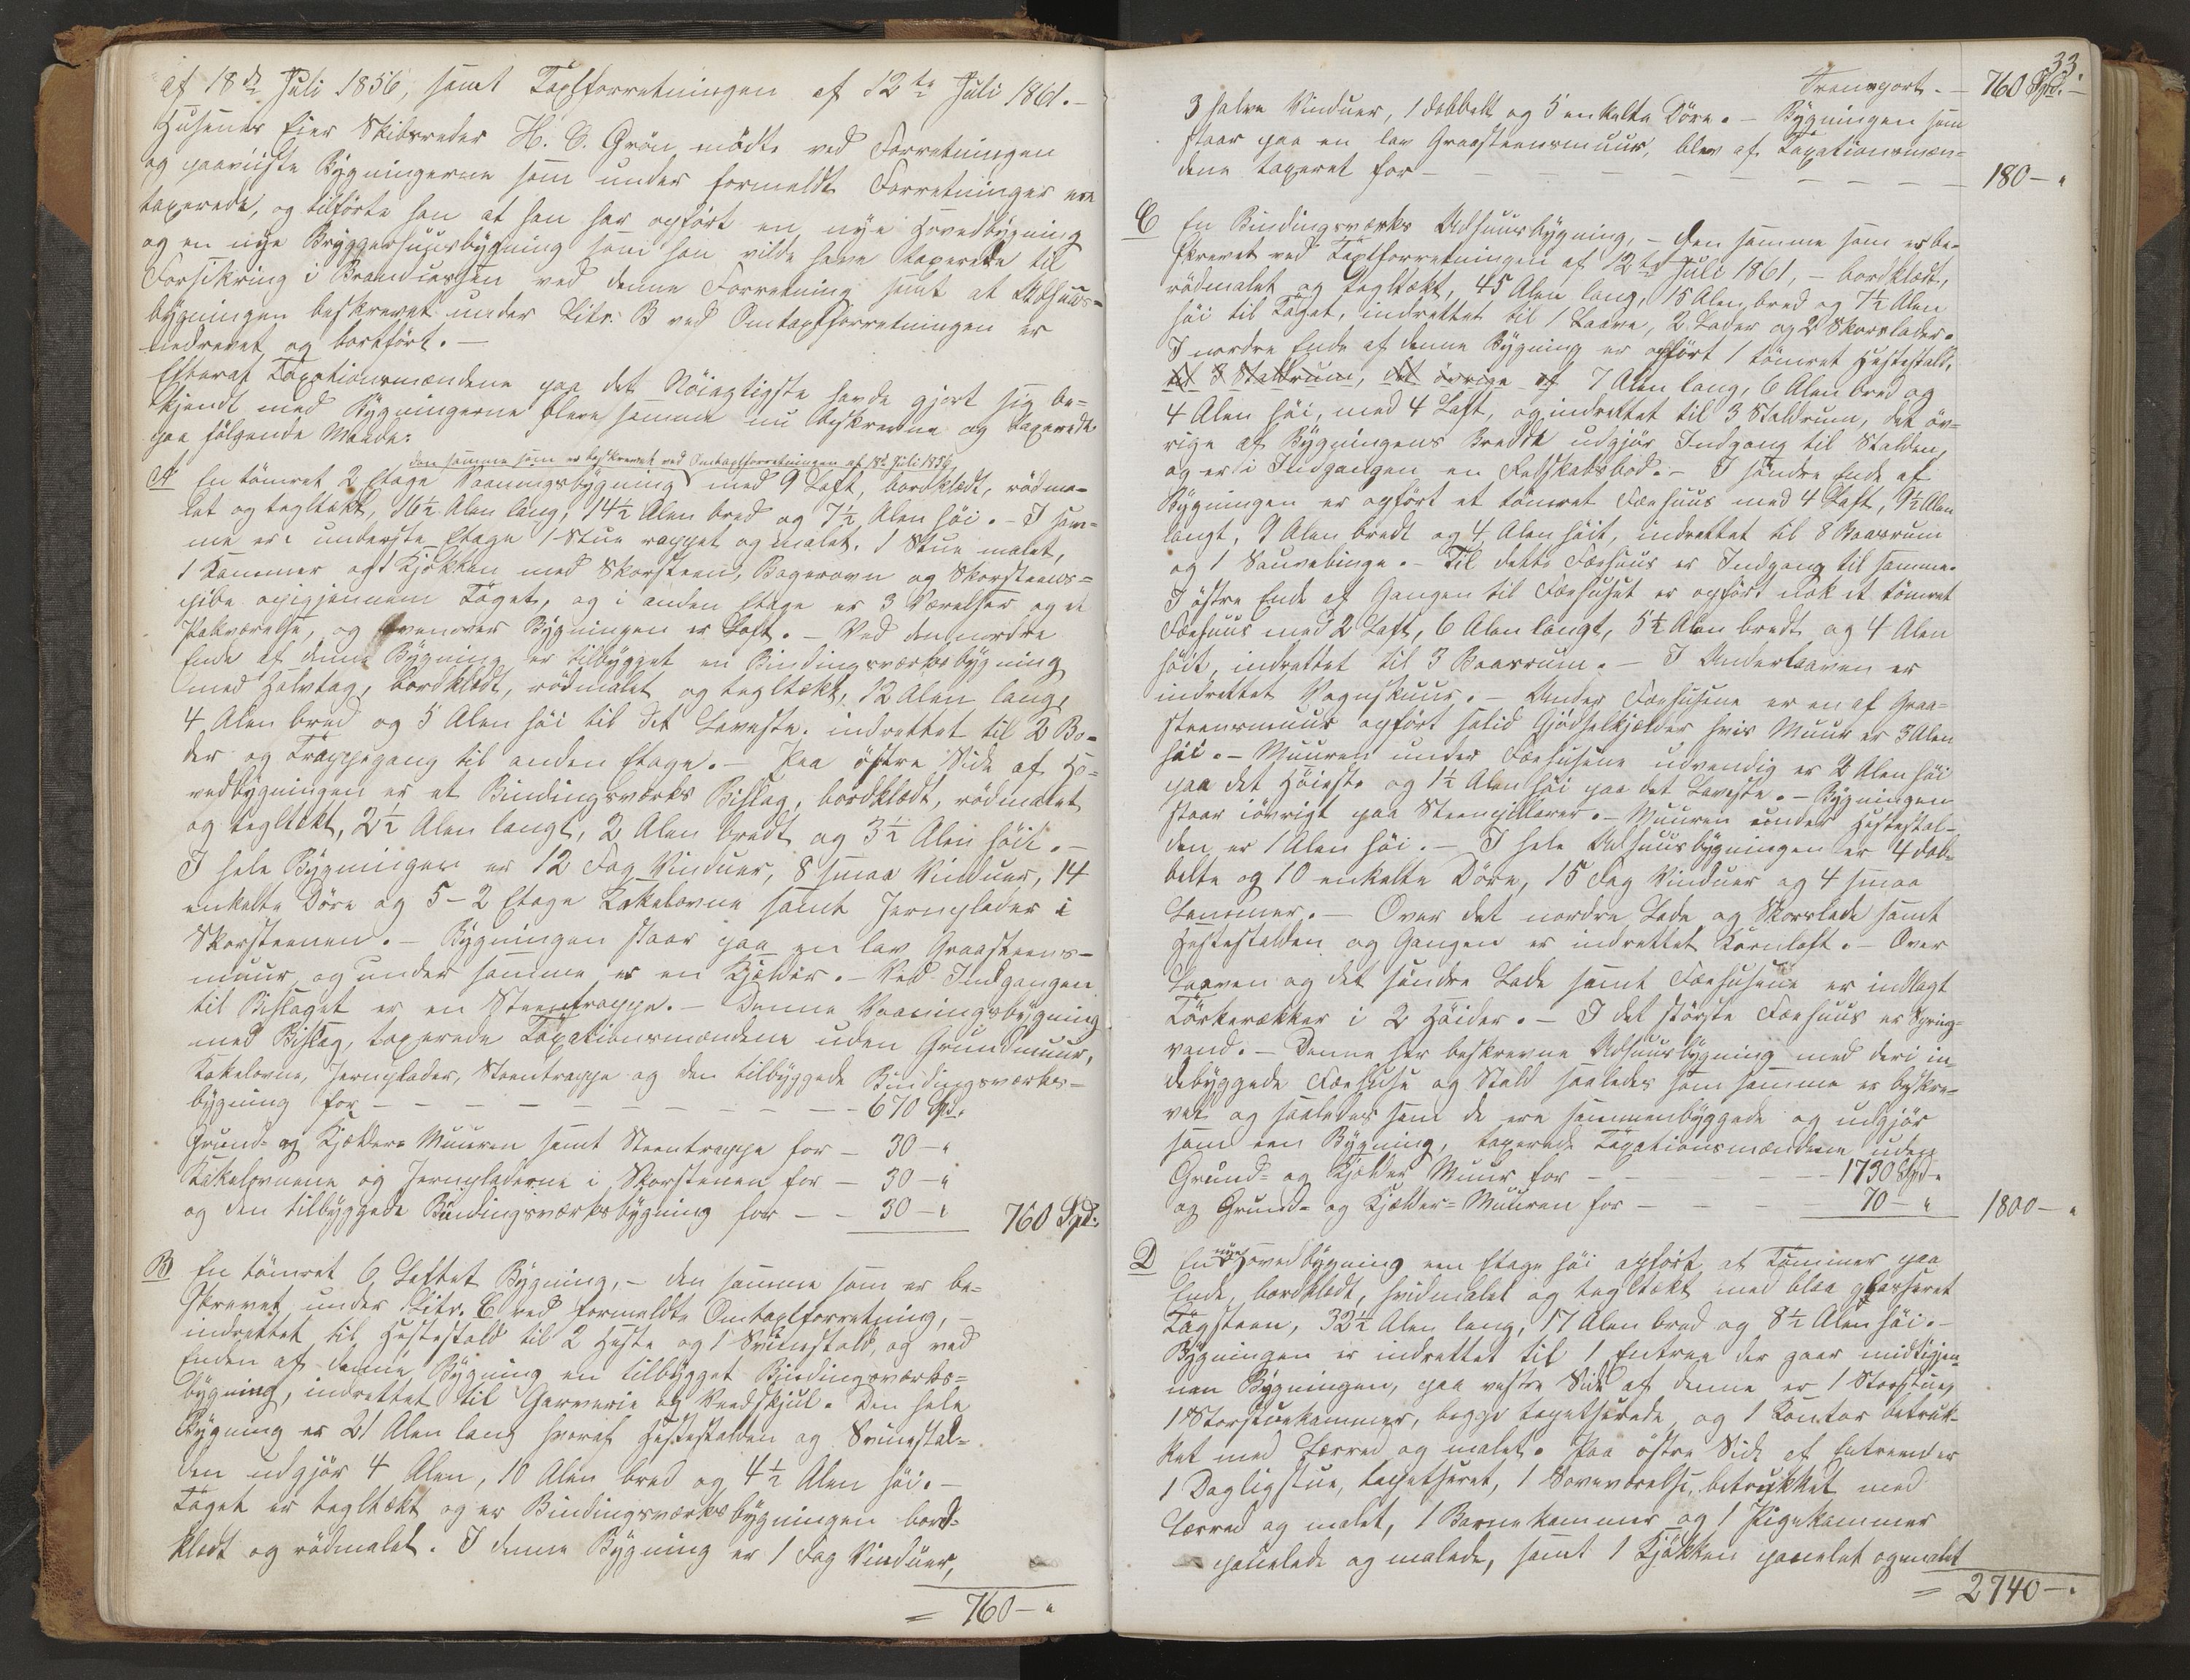 af 18de Juli 1856, samt Taxtforretningen af 12te Juli 1861. –
Husenes Eier Skibsreder H. C. Grøn mödte ved Forretningen
og paaviiste Bygningerne som under formeldte Forretninger ere
taxerede, og tilförte han at han har opfört en nye Hovedbygning
og en nye Bryggerhuusbygning som han vilde have taxerede til
Forsikring i Brandcassen ved denne Forretning samt at Udhuus-
bygningen beskrevet under Litr: B ved Omtaxtforretningen er
nedrevet og bortfört. –
Efterat Taxationsmændene paa det Nöiagtigste havde gjort sig be-
kjendt med Bygningerne bleve samme nu beskrevne og taxerede
paa fölgende Maade:
den samme som er beskrevet ved Omtaxtforretningen af 18de Juli 1856
A En tömret 2 Etage Vaaningsbygning med 9 Laft, bordklædt, rödma-
let og tegltækt, 16½ Alen lang, 14½ Alen bred og 7½ Alen höi. – I sam-
me er i underste Etage 1 Stue rappet og malet, 1 Stue malet,
1 Kammer og 1 Kjökken med Skorsteen, Bagerovn og Skorsteens-
pibe opigjennem Taget, og i anden Etage er 3 Værelser og et
Halværelse, og ovenover Bygningen er Loft. – Ved den nordre
Ende af denne Bygning er tilbygget en Bindingsværksbygning
med Halvtag, bordklædt, rödmalet og tegltækt, 12 Alen lang,
4 Alen bred og 5 Alen höi til det Laveste, indrettet til 2 Bo-
der og Trappegang til anden Etage. – Paa östre Side af Ho-
vedbygningen er et Bindingsværks Bislag, bordklædt, rödmalet
og tegltækt, 2½ Alen langt, 2 Alen bredt og 3½ Alen höit. –
I hele Bygningen er 12 Fag Vinduer, 8 smaa Vinduer, 14
enkelte Döre og 5 – 2 Etage Kakelovne samt Jernplader i
Skorsteenen. – Bygningen staar paa en lav Graasteens-
muur og under samme er en Kjelder. – Ved Indgangen
til Bislaget er en Steentrappe. – Denne Vaaningsbygning
med Bislag, taxerede Taxationsmændene uden Grundmuur,
Kakelovne, Jernplader, Steentrappe og den tilbyggede Bindingsværks-
bygning for – – – – – – – – – 670 Spd.
Grund- og Kjelder-Muuren samt Steentrappe for – 30 – "
Kakelovnene og Jernpladerne i Skorstenen for – 30 – "
og den tilbyggede Bindingsværksbygning for – – 30 – " 760 Spd.
B En tömret 6 Laftet Bygning, – den samme som er be-
skrevet under Litr. C ved formeldte Omtaxtforretning, –
indrettet til Hestestald til 2 Heste og 1 Sviinestald, og ved
Enden af denne Bygning en tilbygget Bindingsværks-
bygning, indrettet til Garverie og Vedskjul. Den hele
Bygning er 21 Alen lang hvoraf Hestestalden og Svinestal-
den udgjör 4 Alen, 10 Alen bred og 4½ Alen höi. –
Taget er tegltækt og er Bindingsværksbygningen bord-
klædt og rödmalet. I denne Bygning er 1 Fag Vinduer,
= 760 – "
33.
Transport. – 760 Spd. –
3 halve Vinduer, 1 dobbelt og 5 enkelte Döre. – Bygningen som
staar paa en lav Graasteensmuur, blev af Taxationsmæn-
dene taxeret for – – – – – – – – – 180 – "
C En Bindingsværks Udhuusbygning, – den samme som er be-
skrevet ved Taxtforretningen af 12te Juli 1861, – bordklædt,
rödmalet og tegltækt, 45 Alen lang, 18 Alen bred og 7½ Alen
höi til Taget, indrettet til 1 Laave, 2 Lader og 2 Skavlader.
I nordre Ende af denne Bygning er opfört 1 tömret Hestestald,
til 3 Staldrum, det övrige af 7 Alen lang, 6 Alen bred og
4 Alen höi, med 4 Laft, og indrettet til 3 Staldrum, det öv-
rige af Bygningens Bredde udgjör Indgang til Stalden,
og er i Indgangen en Redskabsbod. – I söndre Ende af
Bygningen er opfört et tömret Fæehuus med 4 Laft, 9½ Alen
langt, 9 Alen bredt og 4 Alen höit, indrettet til 8 Baasrum
og 1 Sauebinge. – Til dette Fæehuus er Indgang til samme.
I östre Ende af Gangen til Fæehuset er opfört nok et tömret
Fæehuus med 2 Laft, 6 Alen langt, 5½ Alen bredt og 4 Alen
höit, indrettet til 3 Baasrum. – I Underlaaven er
indrettet Vognskuur. – Under Fæehusene er en af Graa-
steensmuur opfört solid Gjödselkjælder hvis Muur er 3 Alen
höi. – Muuren under Fæehusene udvendig er 2 Alen höi
paa det Höieste og 1½ Alen höi paa det Laveste. – Bygningen
staar iövrigt paa Steenpillarer. – Muuren under Hestestal-
den er 1 Alen höi. – I hele Udhuusbygningen er 4 dob-
belte og 10 enkelte Döre, 15 Fag Vinduer og 4 smaa
Lemmer. – Over det nordre Lade og Skavlade samt
Hestestalden og Gangen er indrettet Kornloft. – Over
Laaven og det söndre Lade samt Fæehusene er indlagt
Törkerækker i 2 Höider. – I det störste Fæehuus er Spring-
vand. – Denne her beskrevne Udhuusbygning med deri in-
debyggede Fæehuse og Stald saaledes som samme er beskre-
vet og saaledes som de ere sammenbyggede og udgjör
som een Bygning, taxerede Taxationsmændene uden
Grund- og Kjelder Muur for – – – – – 1730 Spd.
og Grund- og Kjælder-Muuren for – – – – 70 – " 1800 – "
D En nye Hovedbygning een Etage höi opfört af Tömmer paa
Ende, bordklædt, hvidmalet og tegltækt med blaa glasseret
Tagsteen, 32½ Alen lang, 17 Alen bred og 8½ Alen höi. –
Bygningen er indrettet til 1 Entree der gaar midtigjen-
nem Bygningen, paa vestre Side af denne er 1 Storstue,
1 Storstuekammer, begge tapetserede, og 1 Kontor betruk-
ket med Lærred og malet. Paa östre Side af Entreen er
1 Dagligstue, tapetseret, 1 Soveværelse, betrukket med
Lærred og malet, 1 Barnekammer og 1 Pigekammer
panelede og malede, samt 1 Kjökken panelet og malet
= 2740 – "